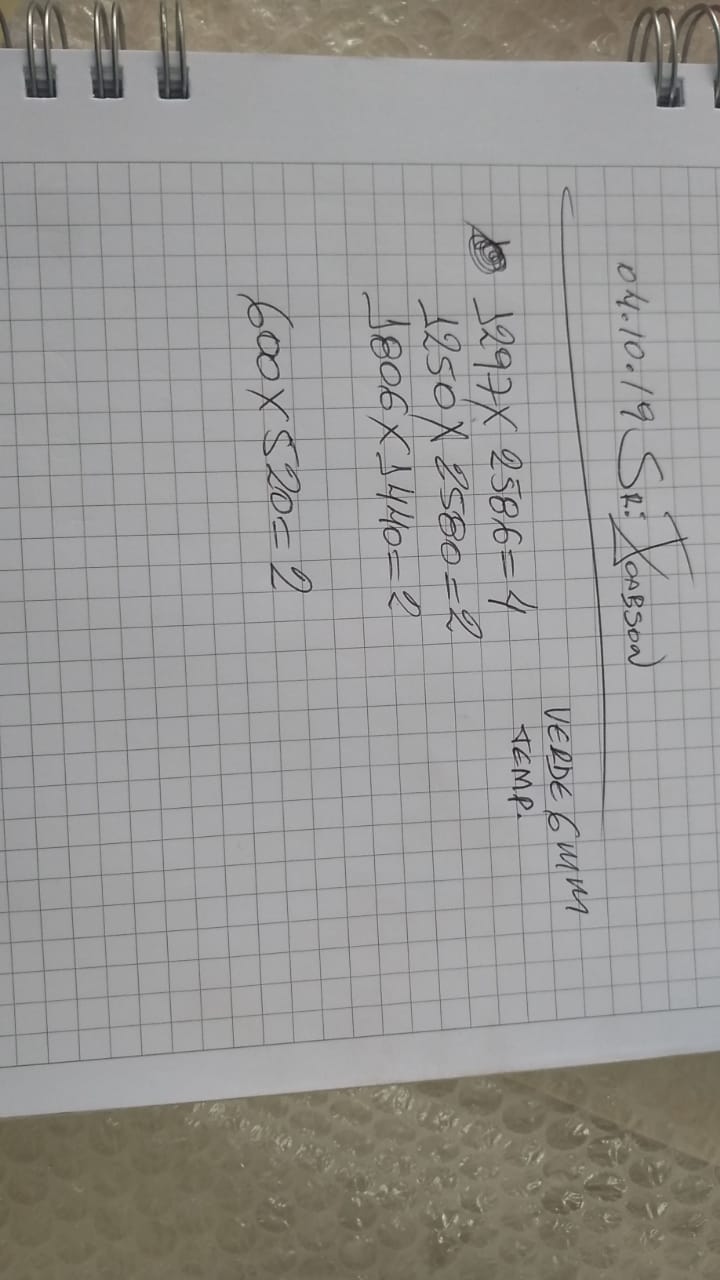 04.10.19 SR: JOABSON
VERDE 6 mm
TEMP.
1297 X 2586 = 4
1250 X 2580 = 2
1806 X 1440 = 2
600 X 520 = 2